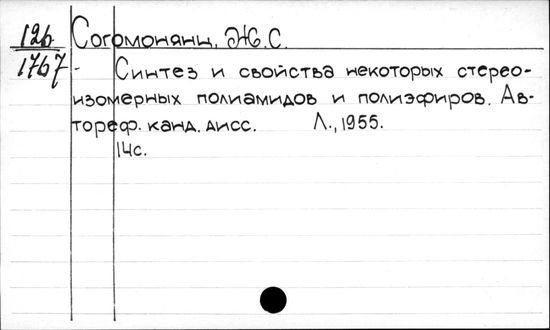 126 Согомонянц, Ж.С.
1767 - Синтез и свойства некоторых стерео-
изомерных полиамидов и полиэфиров. Ав-
тореф. канд. дисс. Л., 1955.
14с.